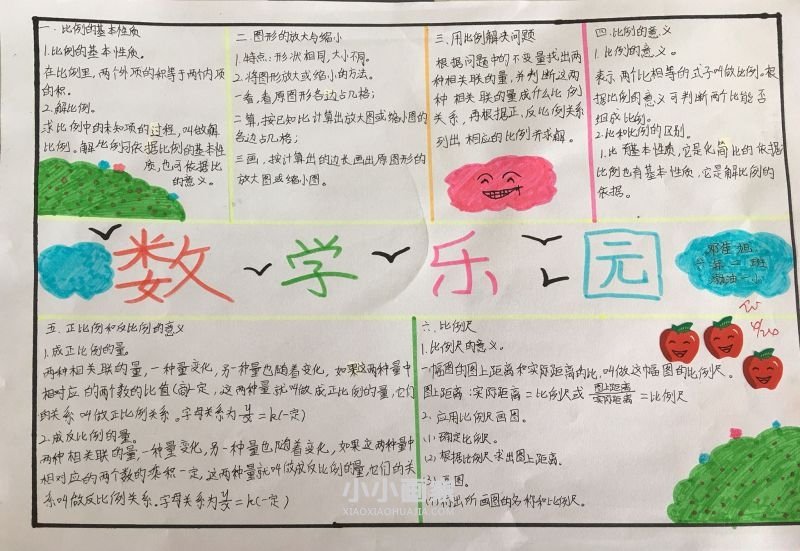 一.比例的基本性质
1.比例的基本性质.
在比例里,两个外项的积等于两个内项
的积.
2.解比例.
求比例中的未知项的过程,叫做解
比例.解比例可依据比例的基本性
质,也可依据比
的意义.
二.图形的放大与缩小
1.特点:形状相同,大小不同.
2.将图形放大或缩小的方法.
一看,看原图形各边占几格;
二算,按已知比计算出放大图或缩小图的
各边占几格;
三画,按计算出的边长画出原图形的
放大图或缩小图.
三.用比例解决问题
根据问题中的不变量找出两
种相关联的量,并判断这两
种相关联的量成什么比例
关系,再根据正、反比例关系
列出相应的比例并求解.
四.比例的意义
1.比例的意义.
表示两个比相等的式子叫做比例.根
据比例的意义可判断两个比能否
组成比例.
2.比和比例的区别.
1.比有基本性质,它是化简比的依据
比例也有基本性质,它是解比例的
依据.
数学乐园
六年二班
五.正比例和反比例的意义
1.成正比例的量.
两种相关联的量,一种量变化,另一种量也随着变化,如果这两种量中
相对应的两个数的比值(商)一定,这两种量就叫做成正比例的量,它们
的关系叫做正比例关系.字母关系为=k(一定)
2.成反比例的量.
两种相关联的量,一种量变化,另一种量也随着变化,如果这两种量中
相对应的两个数的乘积一定,这两种量就叫做成反比例的量,它们的关
系叫做反比例关系.字母关系为=k(一定)
六.比例尺
1.比例尺的意义.
一幅图的图上距离和实际距离的比,叫做这幅图的比例尺.
图上距离:实际距离=比例尺或图上距离/实际距离=比例尺
2.应用比例尺画图.
(1)确定比例尺.
(2)根据比例尺求出图上距离.
(3)画图.
标出所画图的名称和比例尺.
小小画
XIAOXIAOHUAJIA.COM